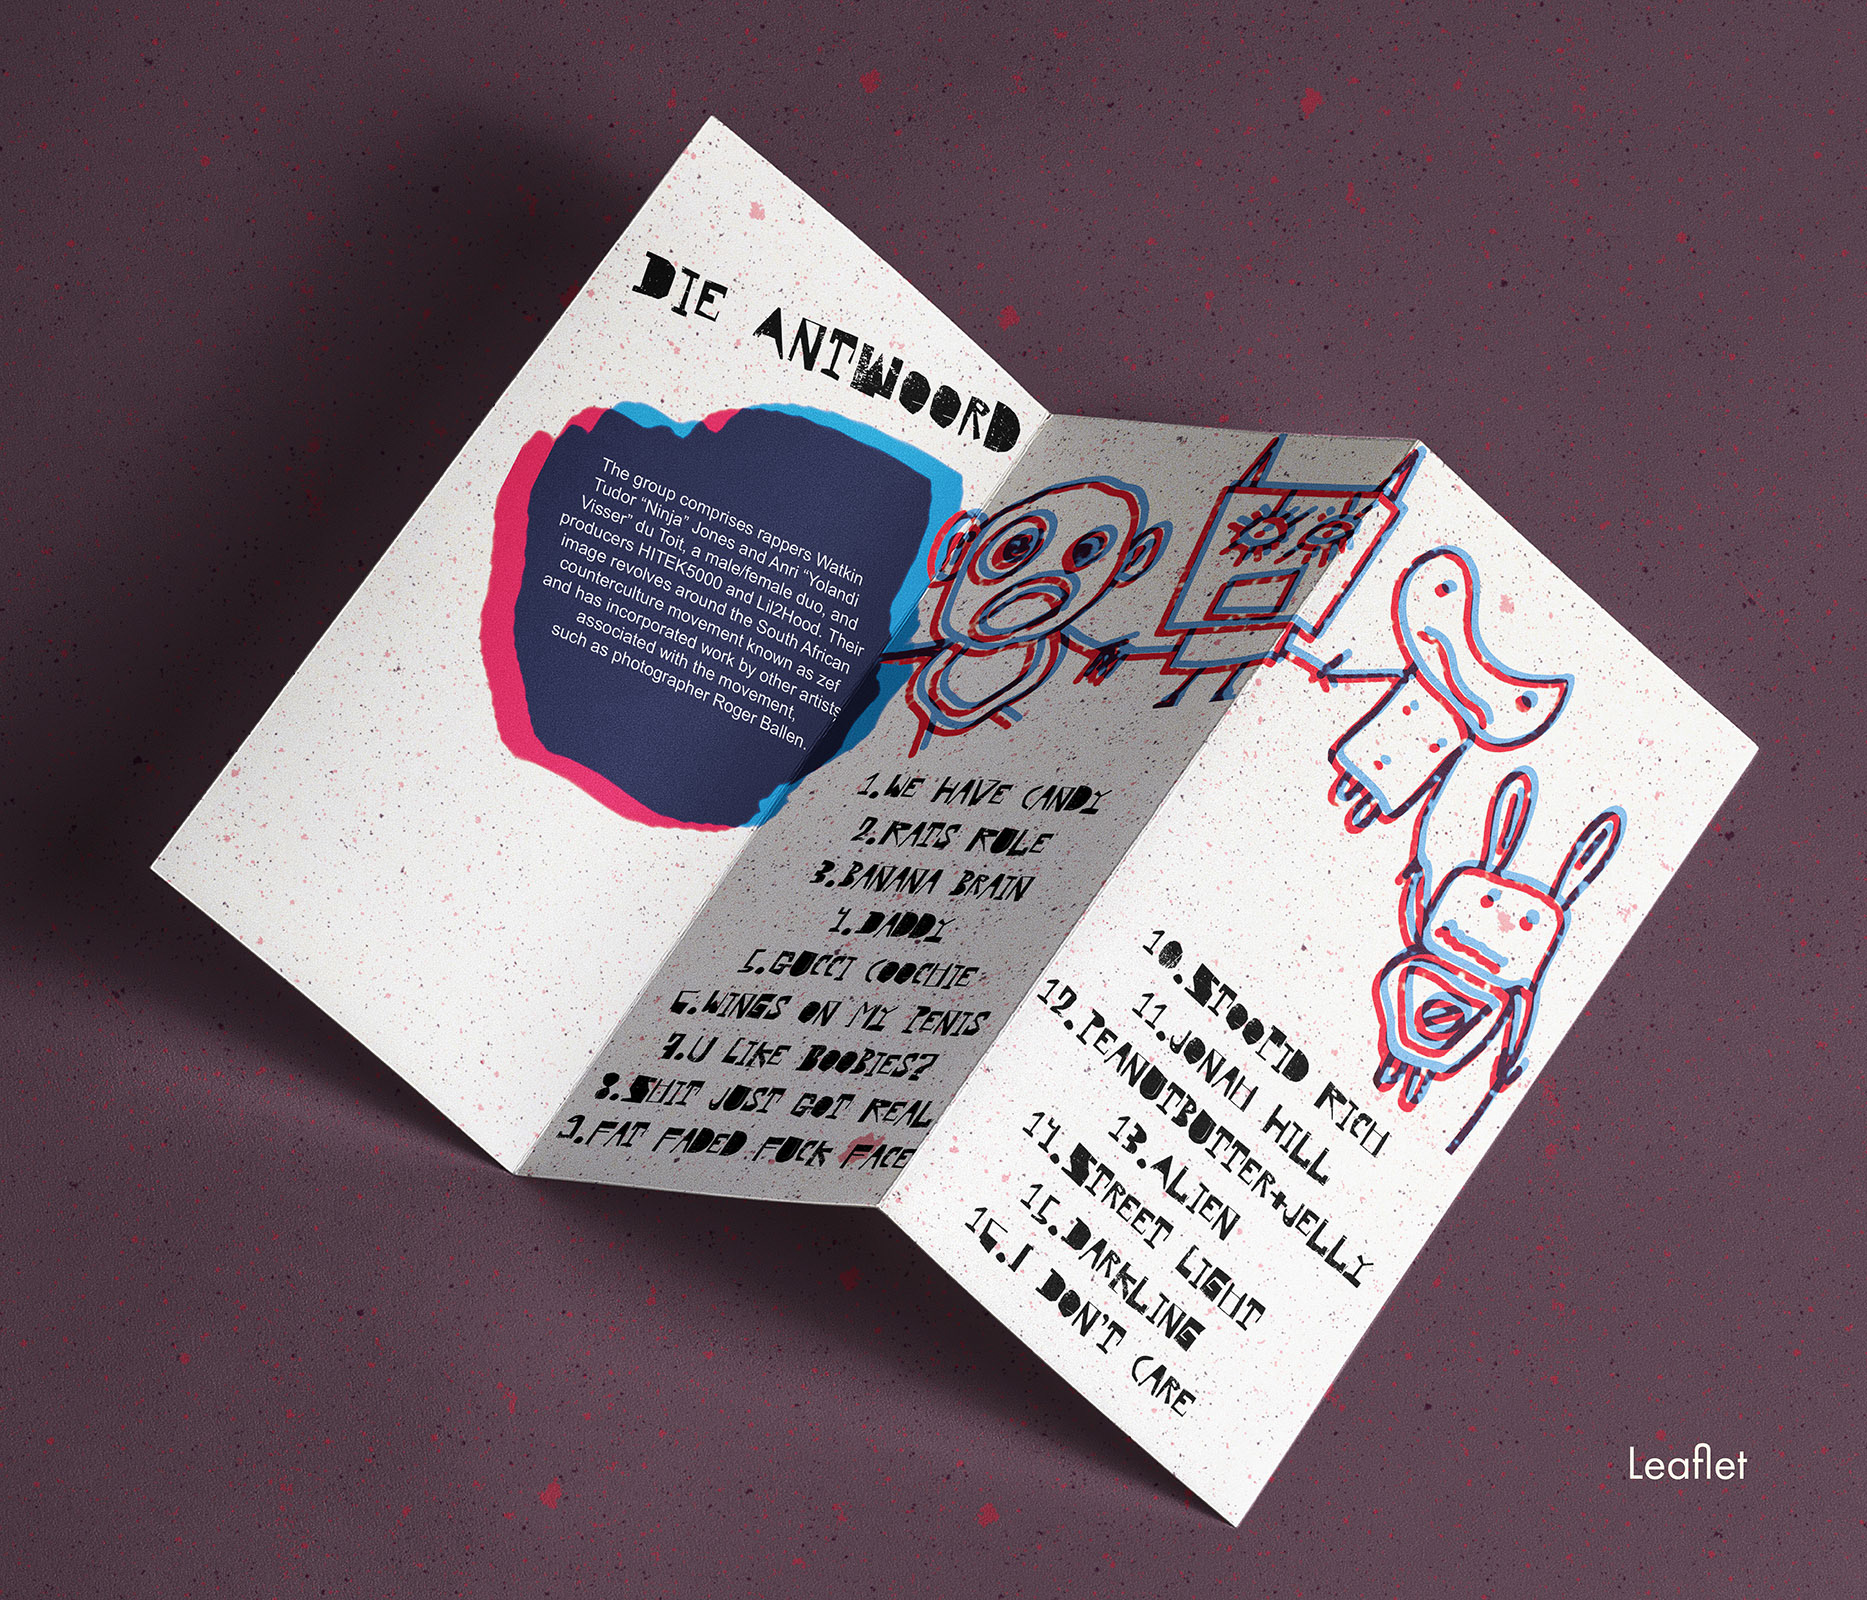 DIE ANTWOORD
The group comprises rappers Watkin
Tudor “Ninja” Jones and Anri “Yolandi
Visser” du Toit, a male/female duo, and
producers HITEK5000 and Lil2Hood. Their
image revolves around the South African
counterculture movement known as zef
and has incorporated work by other artists
associated with the movement,
such as photographer Roger Ballen.
1.WE HAVE CANDY
2.RATS RULE
3.BANANA BRAIN
4.DADDY
5.GUCCI COOCHIE
6.WINGS ON MY PENIS
7.U LIKE BOOBIES?
8.SHIT JUST GOT REAL
9.FAT FADED FUCK FACE
10.STOOPID RICH
11.JONAH HILL
12.PEANUTBUTTER+JELLY
13.ALIEN
14.STREET LIGHT
15.DARKLING
16.I DON'T CARE
Leaflet